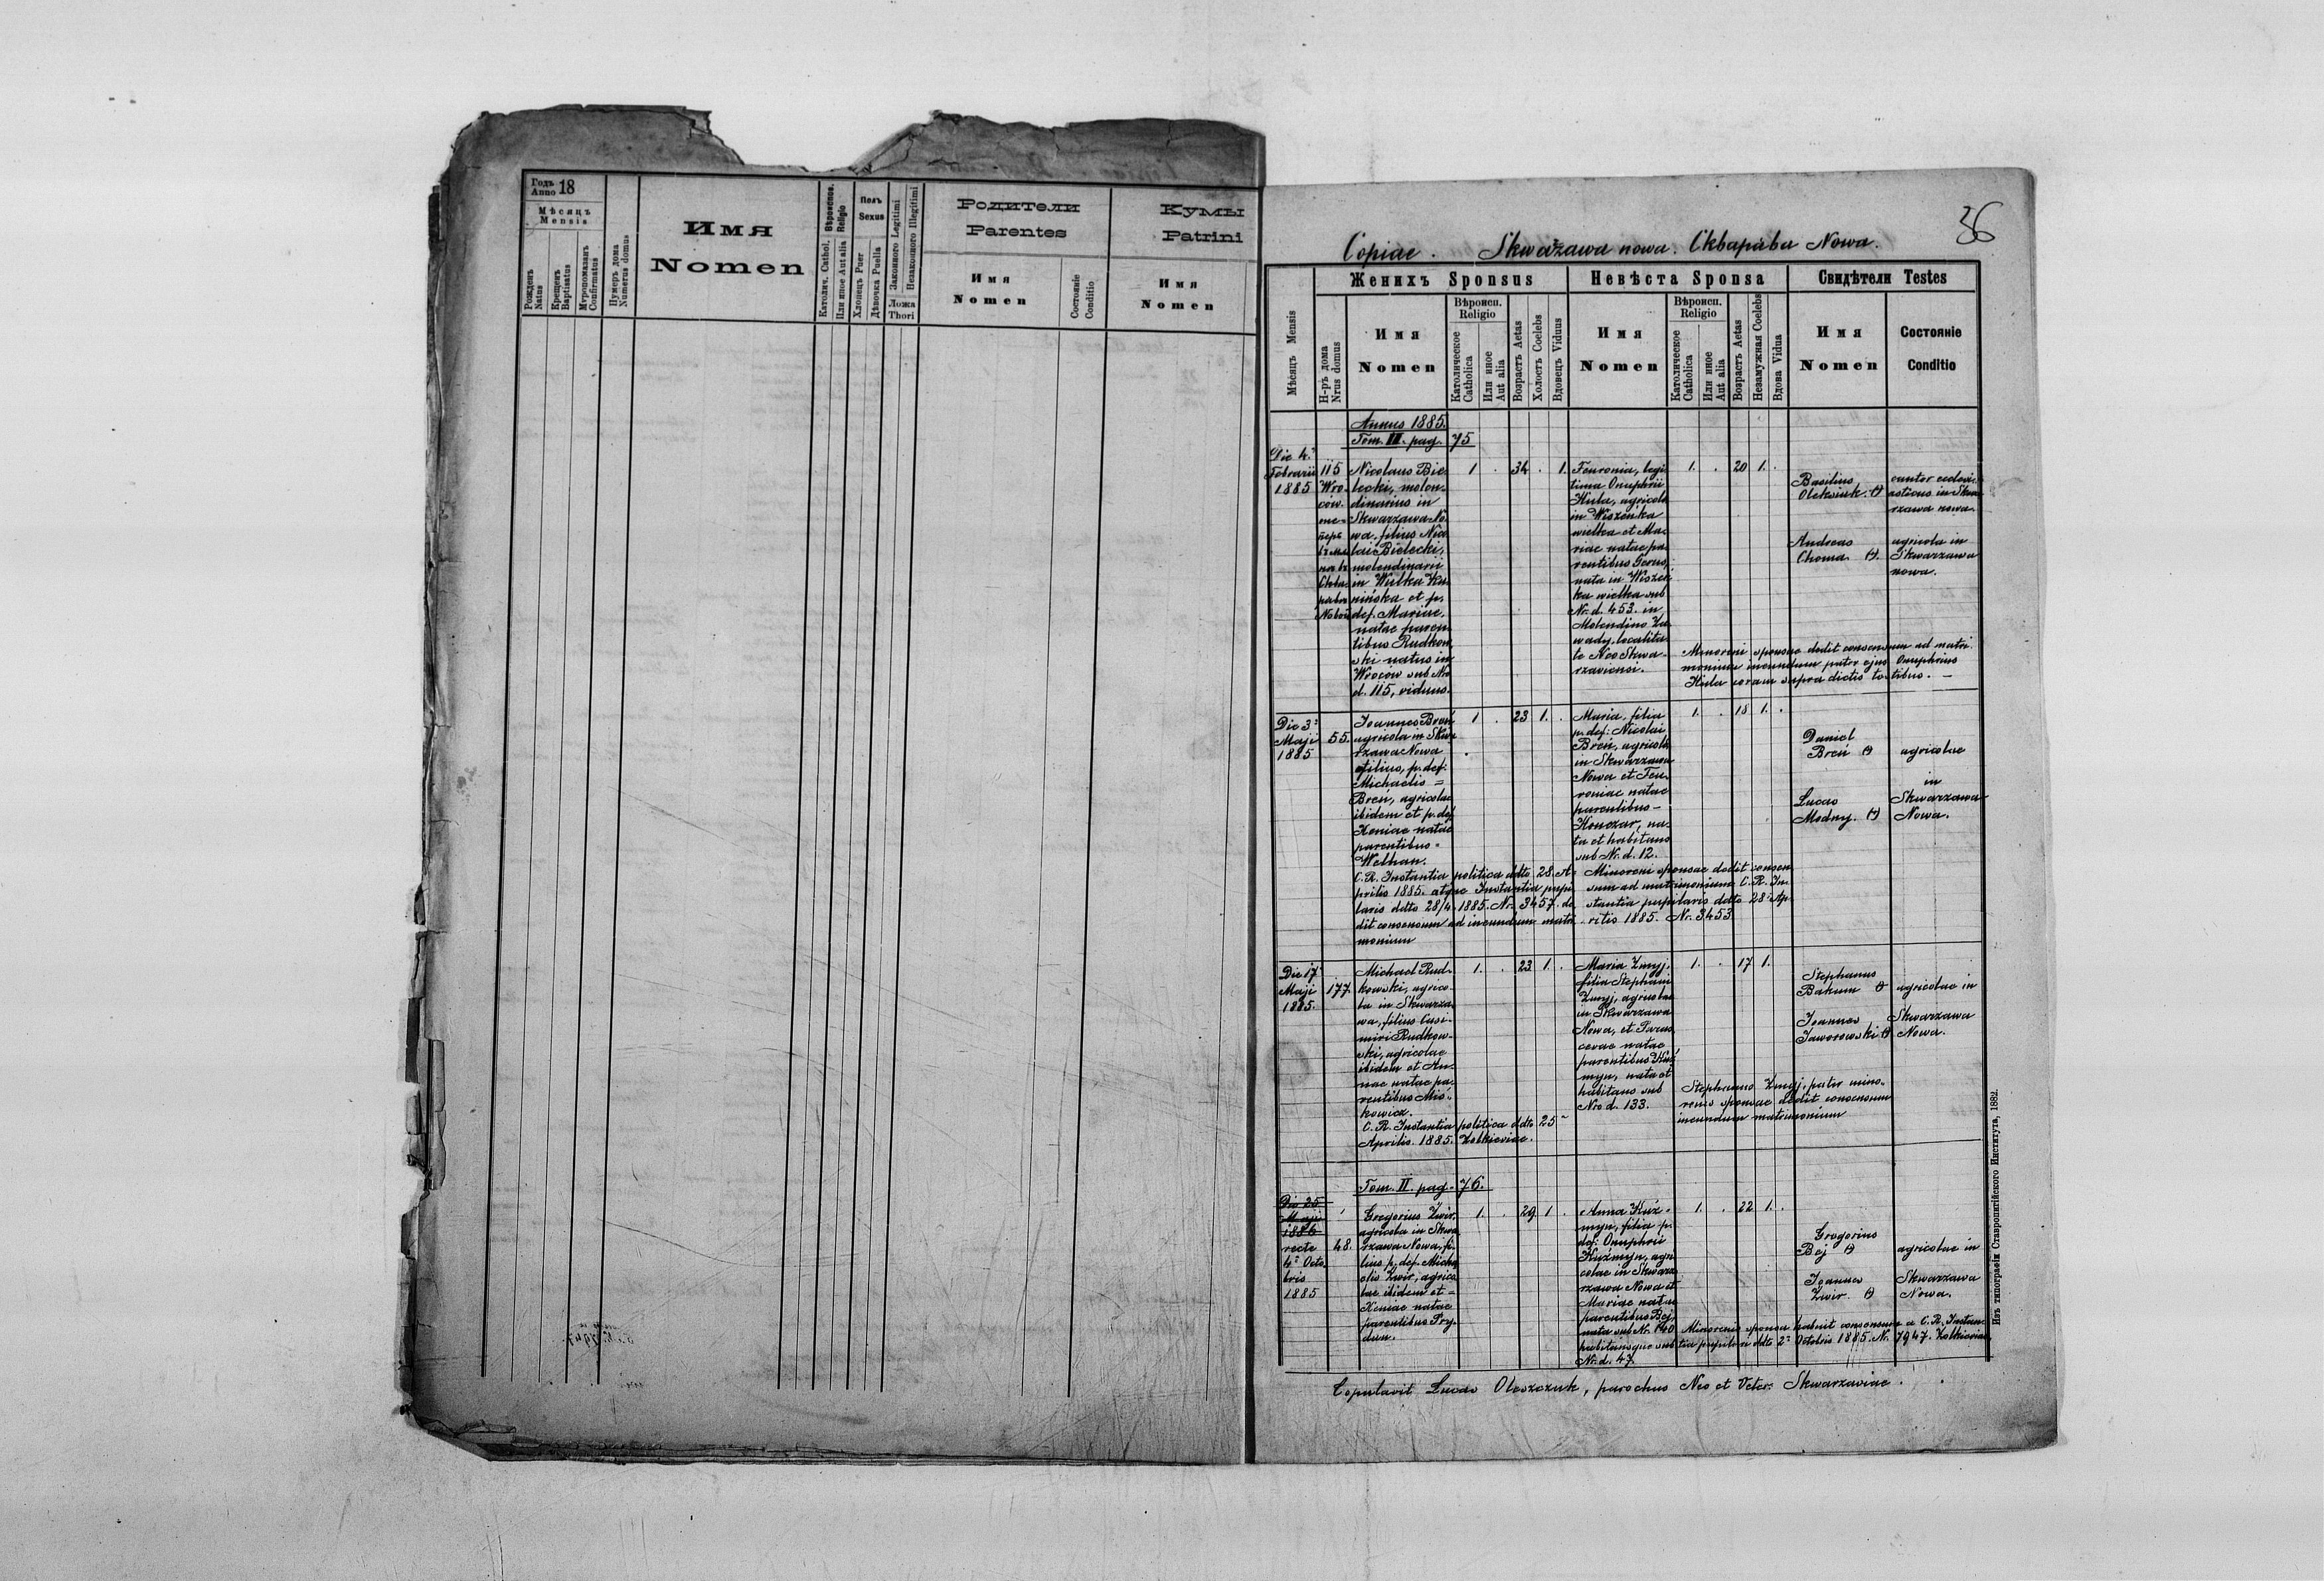 Годъ
Anno 18
Мѣсяцъ
Mensis
Рожденъ
Natus
Крещенъ
Baptisatus
Мѵропомазанъ
Confirmatus
Нумеръ дома
Numerus domus
Имя
Nomen
Вѣроиспов.
Religio
Католич. Cathol.
Или иное Aut alia
Полъ
Sexus
Хлопецъ Puer
Дѣвочка Puella
Законного Legitimi
Незаконного Illegitimi
Ложа
Thori
Родители
Parentes
Имя
Nomen
Состояніе
Conditio
Кумы
Patrini
Имя
Nomen
36
Copiae. Skwarzawa nowa. Скварѣва Nowa.
Мѣсяцъ Mensis
Н-ръ дома
Nrus domus
Женихъ Sponsus
Имя
Nomen
Вѣроисп.
Religio
Католическое
Catholica
Или иное
Aut alia
Возрастъ Aetas
Холостъ Coelebs
Вдовецъ Viduus
Невѣста Sponsa
Имя
Nomen
Вѣроисп.
Religio
Католическое
Catholica
Или иное
Aut alia
Возрастъ Aetas
Незамужная Coelebs
Вдова Vidua
Свидѣтели Testes
Имя
Nomen
Состояніе
Conditio
Annus 1885.
Tom. III. pag. 75
Die 4ª
Februarii
1885
115
Wro-
cow.
Nicolaus Bie-
lecki, molen-
dinarius in
Skwarzawa No-
wa, filius Nico
lai Bielecki,
molendinarii
in Wulka Ku-
nińska et p.
def. Mariae,
natae paren-
tibus Rudkow
ski natus in
Wrocow sub Nro
d. 115, viduus.
1 . 34 . 1.
Feuronia, legi
tima Onuphrii
Hula, agricola
in Wiszenka
wielka et Ma-
riae natae pa
rentibus Gerus,
nata in Wiszen
ka wielka sub
Nr. d. 453. in
Molendino Za
wady, localita-
te Neo Skwa-
rzaviensi.
1. . 20 1. .
Basilius
Oleksiuk.
cantor ecclesi-
asticus in Skwa-
rzawa nowa.
Andreas
Choma
agricola in
Skwarzawa
nowa.
Minoreni sponsae dedit consensum ad matri-
monium ineundum pater ejus Onuphrius
Hula coram supra dictis testibus. —
Die 3ª
Maji
1885
55.
Joannes Breń
agricola in Skwa
rzawa Nowa
filius, p. def.
Michaelis =
Breń, agricolae
ibidem et p. def.
Xeniae natae
parentibus =
Welhan.
1 . 23 1. .
Maria, filia
p. def: Nicolai
Breń, agricola
in Skwarzawa
Nowa et Feu-
roniae natae
parentibus -
Konczar, na-
ta et habitans
sub Nr. d. 12.
1. . 18 1. .
Daniel
Breń
agricolae
in
Skwarzawa
Nowa.
Lucas
Modny.
C. R. Instantia politica ddto 28. A-
prilis 1885. atque Instantia pupi
laris ddto 28/4 1885. Nr. 3457. de
dit consensum ad ineundum matri
monium
Minoreni sponsae dedit consen
sum ad matrimonium C. R. In-
stantia pupilaris ddto 28 Ap-
rilis 1885. Nr. 3453
Die 17
Maji
1885.
177.
Michael Rud-
kowski, agrico-
la in Skwarza-
wa, filius Casi-
miri Rudkow-
ski, agricolae
ibidem et An-
nae natae pa-
rentibus Mis-
kowicz.
1. . 23 1. .
Maria Zmyj,
filia Stephani
Zmyj, agricolae
in Skwarzawa
Nowa, et Paras
cevae natae
parentibus Kuź
myn, nata et
habitans sub
Nro d. 133.
1. . 17 1.
Stephanus
Bakum
agricolae in
Skwarzawa
Nowa.
Joannes
Jaworowski
Stephanus Zmyj, pater mino-
renis sponsae dedit consensum
ineundum matrimonium
C. R. Instantia politica ddto 25
Aprilis. 1885. Zolkieviae.
Tom. II. pag. 76.
Die 25
Maji
1886
recte
4ª Octo
bris
1885
48.
Gregorius Zwir,
agricola in Skwa
rzawa Nowa, fi-
lius p. def. Micha
elis Zwir, agrico
lae ibidem et =
Xeniae natae
parentibus Pry-
dun.
1. . 29 1 .
Anna Kuź-
myn, filia p.
def: Onuphrii
Kuźmyn, agri
colae in Skwarz
rzawa Nowa et
Mariae natae
parentibus Bej,
nata sub Nr. 140
habitansque sub
Nr. d. 47.
1. . 22 1. .
Gregorius
Bej
agricolae in
Skwarzawa
Nowa.
Joannes
Zwir.
Minorenis sponsa habuit consensum a C. R. Instan-
tia pupilari ddto 2ª Octobris 1885. Nr. 7947. Zolkieviae
Copulavit Lucas Oleszczuk, parochus Neo et Veter. Skwarzaviae.
Изъ типографіи Ставропигійского Института, 1882.